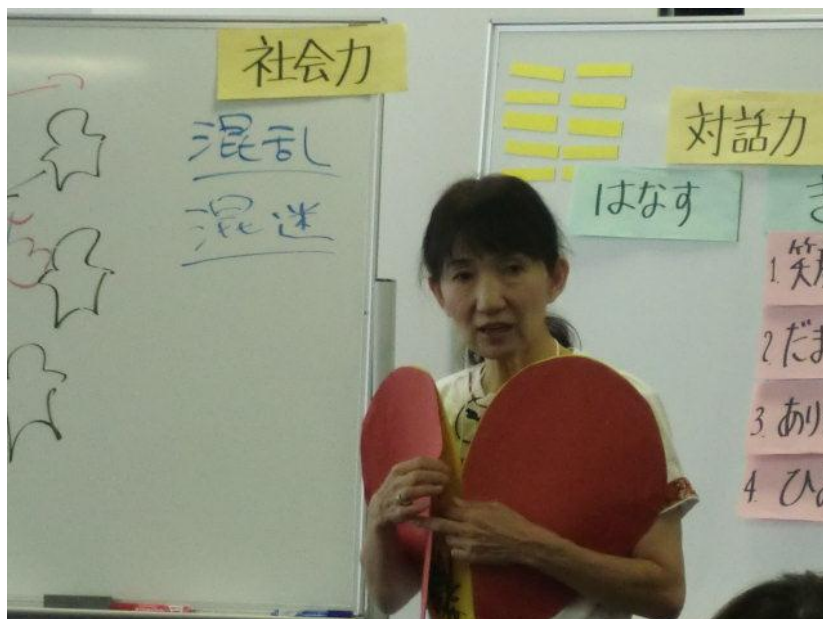 社会力
混乱
混迷
対話力
はなす
1.笑
2.だま
3.あり
4.ひ